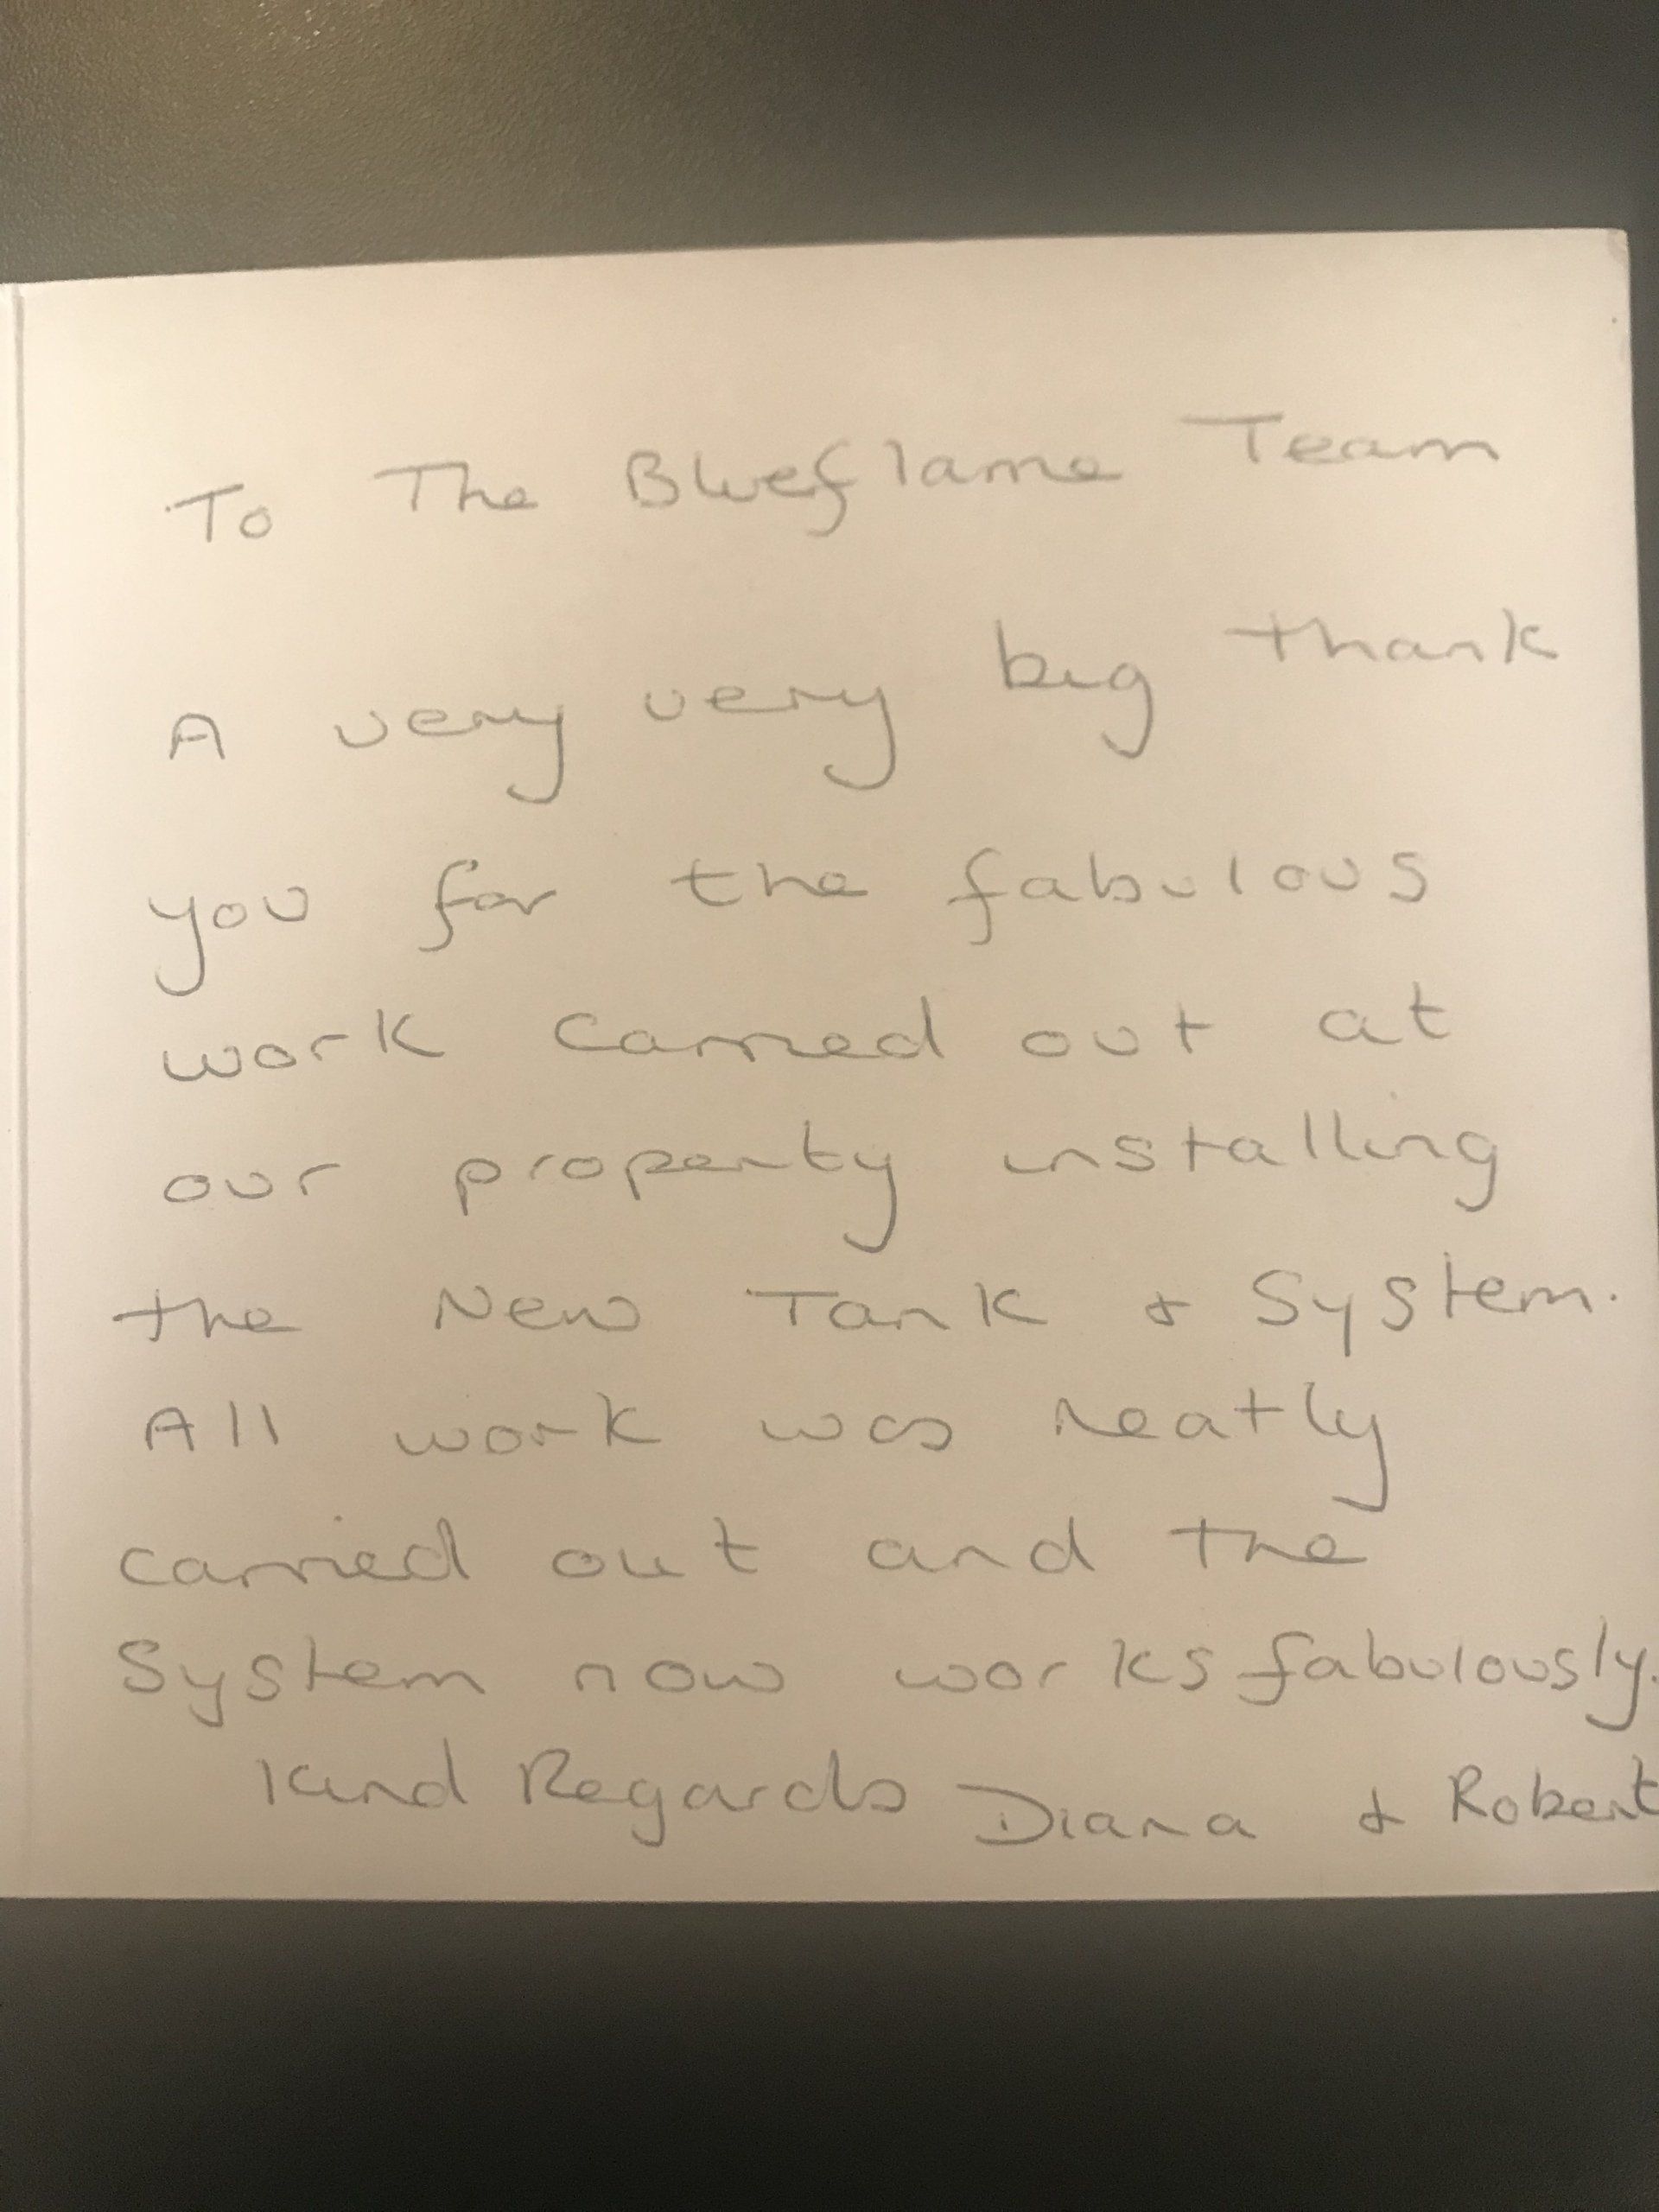 To The Blueflame Team
A very very big thank
you for the fabulous
work carried out at
our property installing
the New Tank & System.
All work was neatly
carried out and the
System now works fabulously.
Kind Regards Diana & Robert